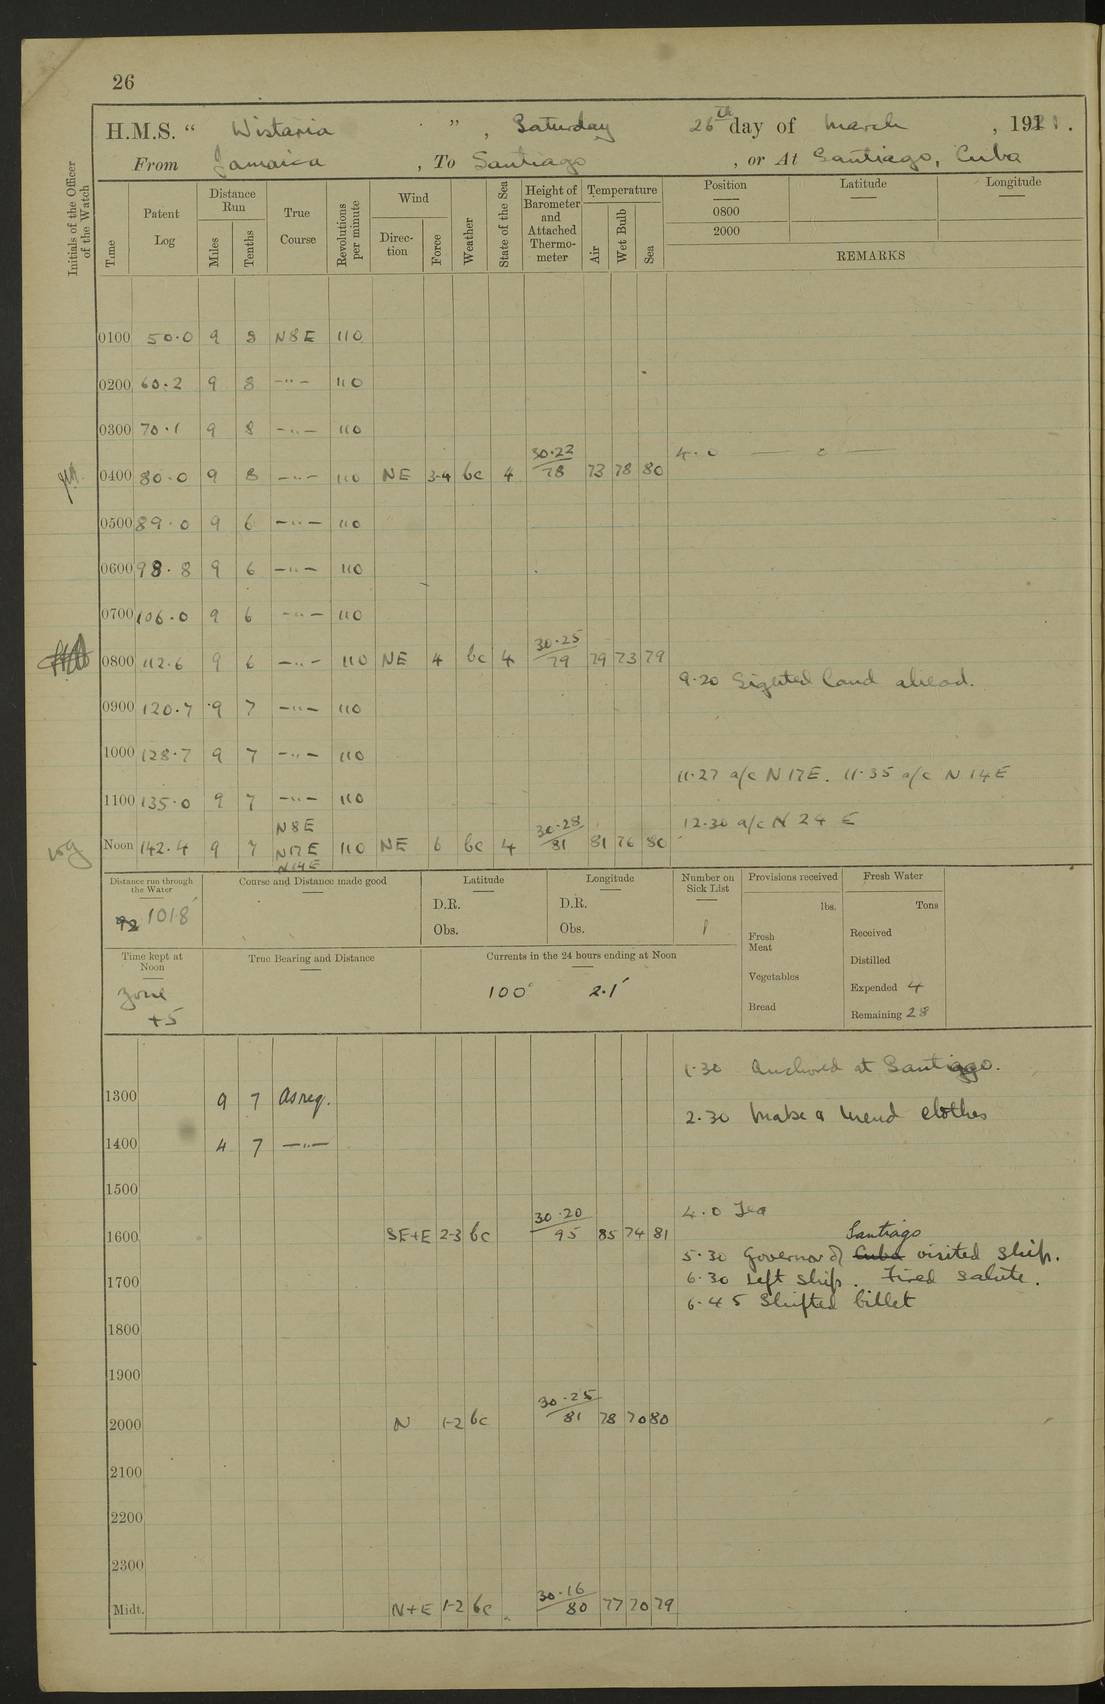 26
H.M.S. " Wistaria ", Saturday 26th day of March, 1921.
From Jamaica, To Santiago, or At Santiago, Cuba
Initials of the Officer of the Watch
Time
Patent Log
Distance Run
Miles
Tenths
True Course
Revolutions per minute
Wind
Direction
Force
Weather
State of the Sea
Height of Barometer and Attached Thermometer
Temperature
Air
Wet Bulb
Sea
Position
0800
2000
Latitude
Longitude
REMARKS
0100 50.0 9 8 N8E 110
0200 60.2 9 8 —"— 110
0300 70.1 9 8 —"— 110
4.0
0400 80.0 9 8 —"— 110 NE 3-4 bc 4 30.22/78 73 78 80
0500 89.0 9 6 —"— 110
0600 98.8 9 6 —"— 110
0700 106.0 9 6 —"— 110
0800 112.6 9 6 —"— 110 NE 4 bc 4 30.25/79 79 73 79
9.20 Sighted land ahead.
0900 120.7 9 7 —"— 110
1000 128.7 9 7 —"— 110
11.27 a/c N17E. 11.35 a/c N14E
1100 135.0 9 7 —"— 110
12.30 a/c N 24 E
Noon 142.4 9 7 N8E N17E N14E 110 NE 6 bc 4 30.28/81 81 76 80
Distance run through the Water
101.8'
Course and Distance made good
Latitude
D.R.
Obs.
Longitude
D.R.
Obs.
Number on Sick List
1
Provisions received
lbs.
Fresh Meat
Vegetables
Bread
Fresh Water
Tons
Received
Distilled
Expended 4
Remaining 28
Time kept at Noon
Zone +5
True Bearing and Distance
Currents in the 24 hours ending at Noon
100° 2.1'
1.30 Anchored at Santiago.
1300 9 7 As req.
2.30 Make & mend clothes
1400 4 7 —"—
1500
4.0 Tea
1600 SE+E 2-3 bc 30.20/95 85 74 81
Santiago
5.30 Governor of Cuba visited ship.
6.30 Left ship. Fired salute.
1700
6.45 Shifted billet
1800
1900
2000 N 1-2 bc 30.25/81 78 70 80
2100
2200
2300
Midt. N+E 1-2 bc 30.16/80 77 70 79